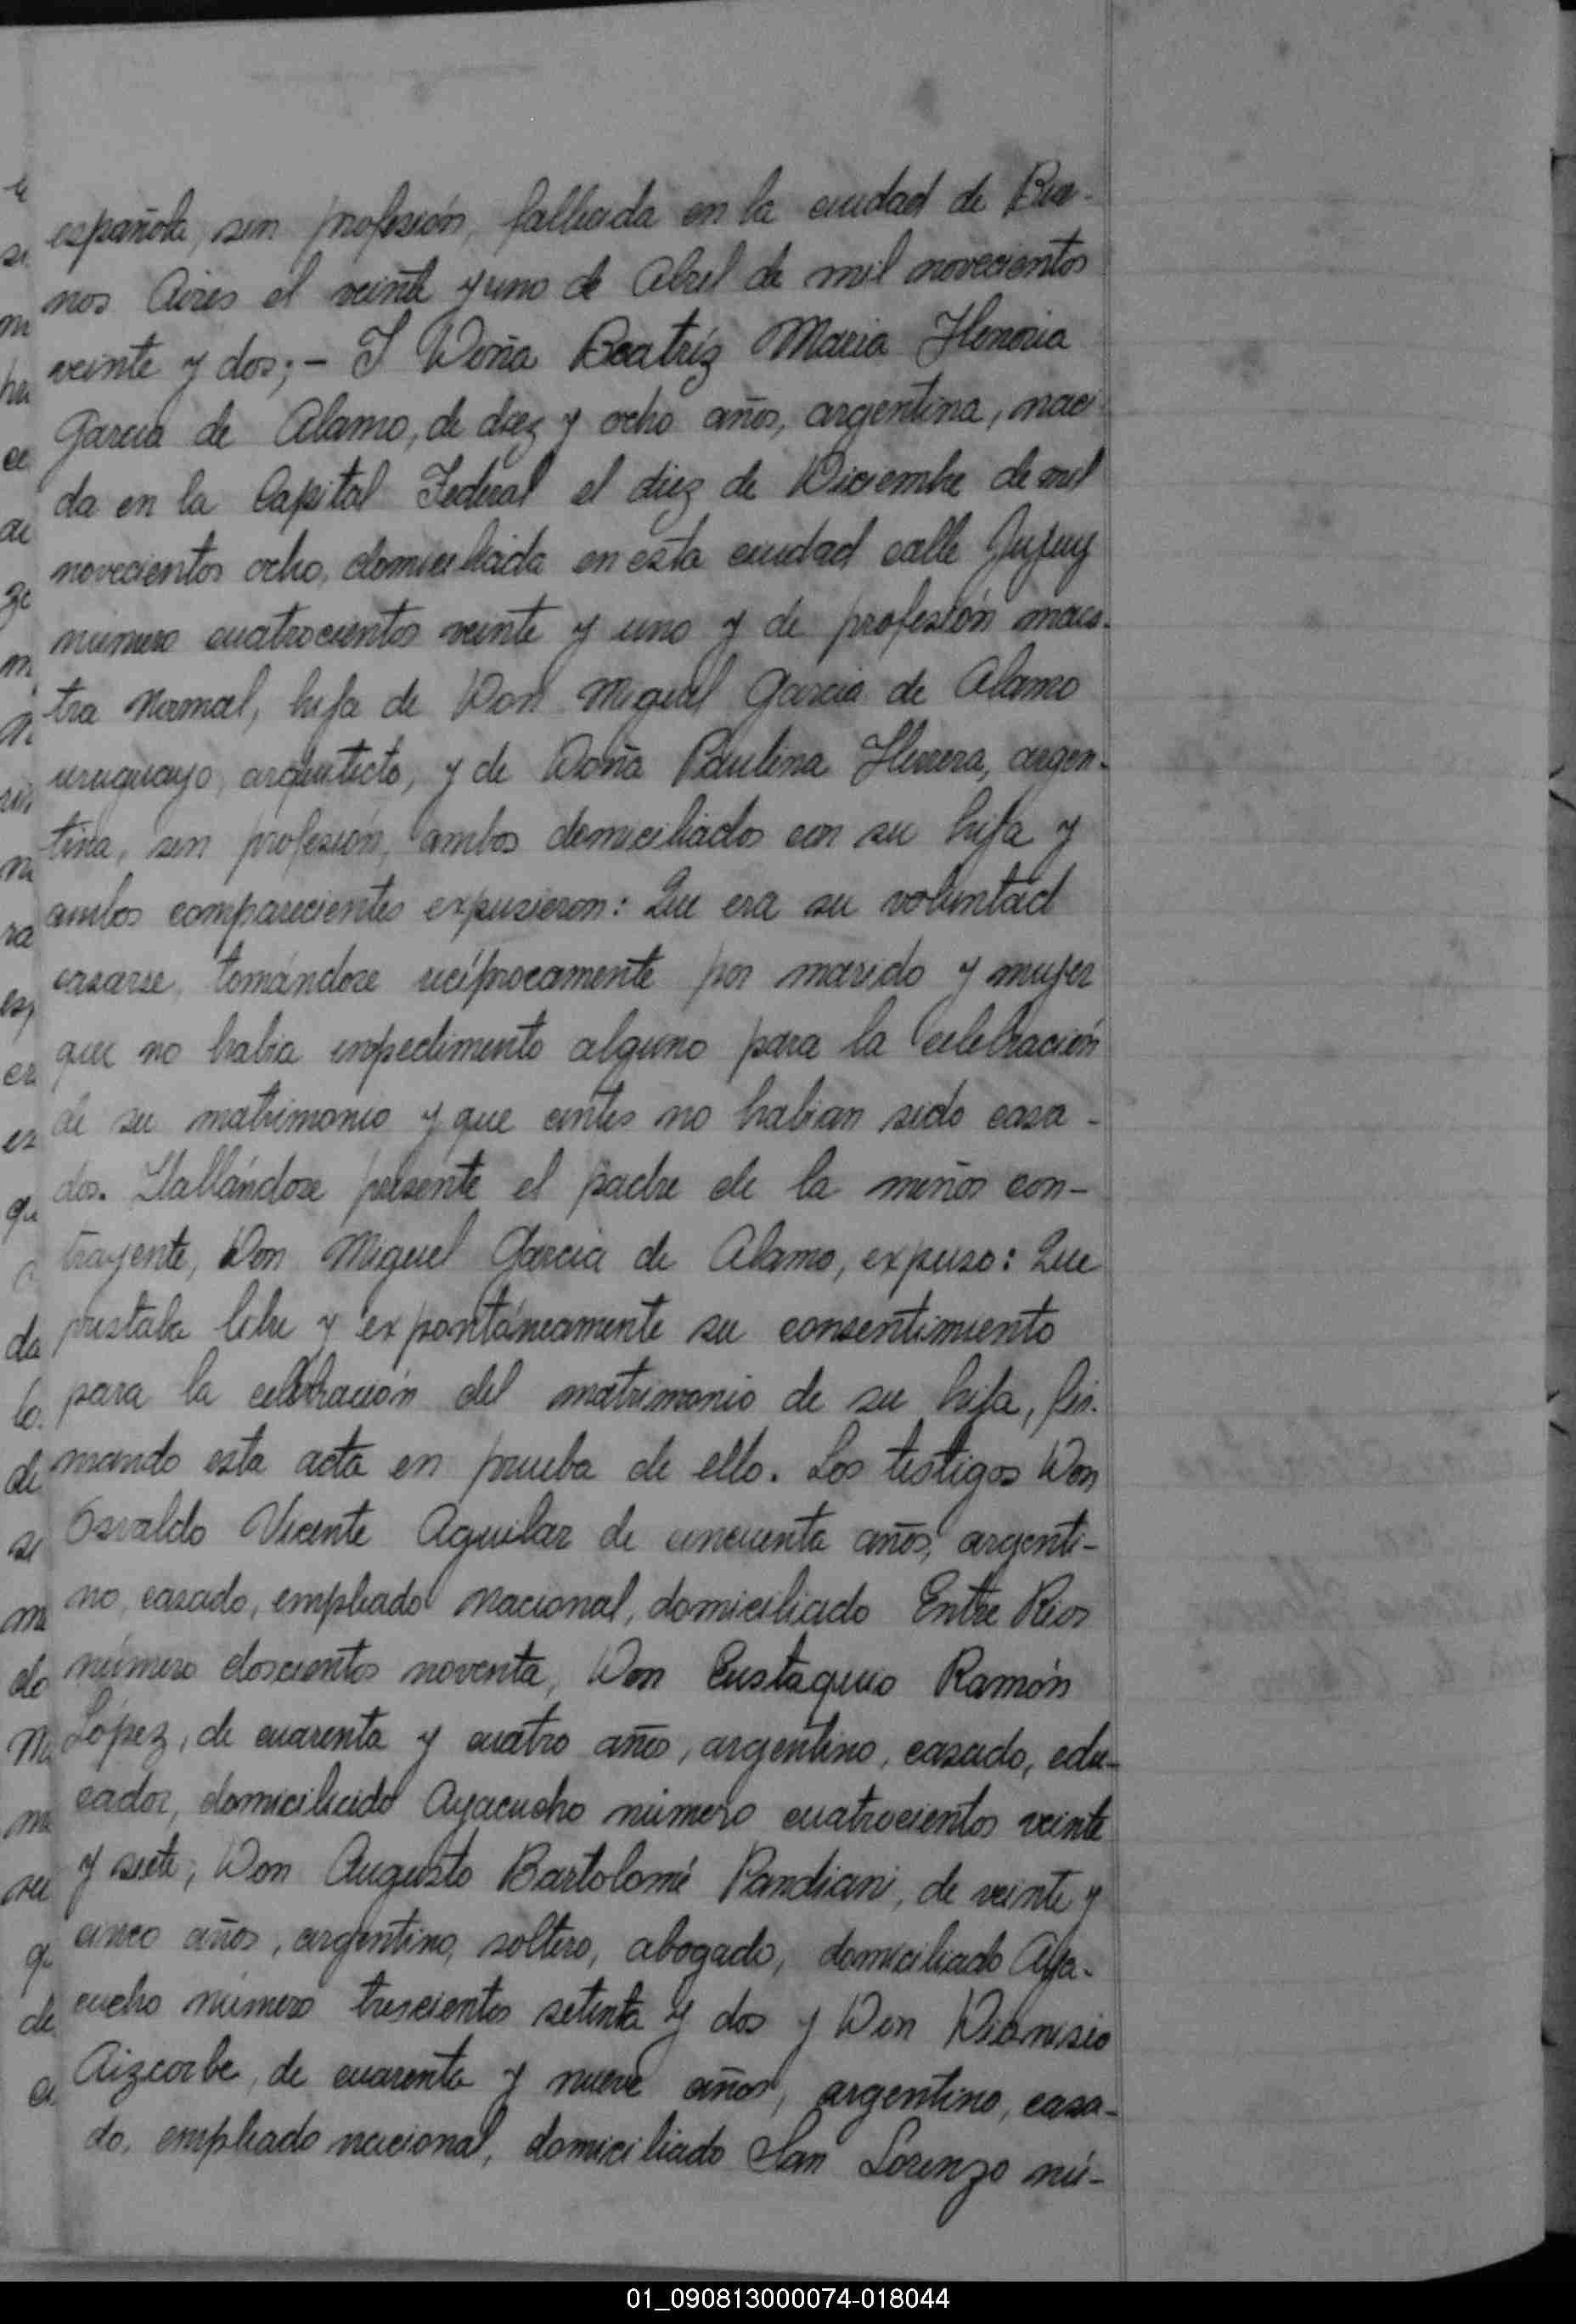 española, sin profesión, fallecida en la ciudad de Bue-
nos Aires el veinte y uno de Abril de mil novecientos
veinte y dos; - I Doña Beatríz Maria Honoria
Garcia de Alamo, de diez y ocho años, argentina, naci
da en la Capital Federal el diez de Diciembre de mil
novecientos ocho, domiciliada en esta ciudad calle Jujuy
número cuatrocientos veinte y uno y de profesión maes-
tra Normal, hija de Don Miguel Garcia de Alamo
uruguayo, arquitecto, y de Doña Paulina Herrera, argen-
tina, sin profesión, ambos domiciliados con su hija y
ambos comparecientes expusieron: Que era su voluntad
casarse, tomándose recíprocamente por marido y mujer
que no habia impedimento alguno para la celebración
de su matrimonio y que antes no habian sido casa-
dos. Hallándose presente el padre de la menor con-
trayente, Don Miguel Garcia de Alamo, expuso: Que
prestaba libre y expontáneamente su consentimiento
para la celebración del matrimonio de su hija, fir-
mando esta acta en prueba de ello. Los testigos Don
Osvaldo Vicente Aguilar de cincuenta años, argenti-
no, casado, empleado Nacional, domiciliado Entre Rios
número doscientos noventa, Don Eustaquio Ramón
López, de cuarenta y cuatro años, argentino, casado, edu-
cador, domiciliado Ayacucho número cuatrocientos veinte
y siete; Don Augusto Bartolomé Pandiani, de veinte y
cinco años, argentino, soltero, abogado, domiciliado Aya-
cucho número trescientos setenta y dos y Don Dionisio
Aizcorbe, de cuarenta y nueve años, argentino, casa-
do, empleado nacional, domiciliado San Lorenzo nú-
01_090813000074-018044